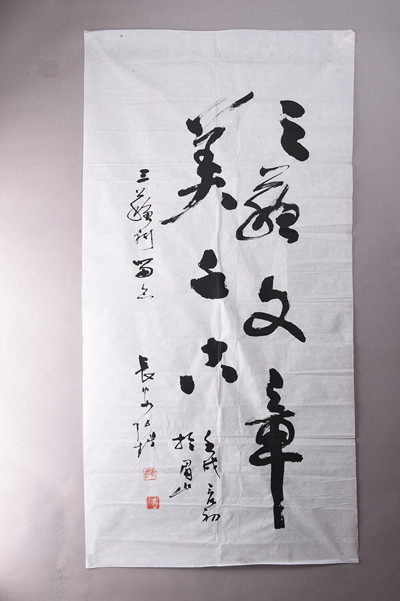 三蘇文章
美千古
壬戌夏初
於眉山
三蘇祠留念
長安